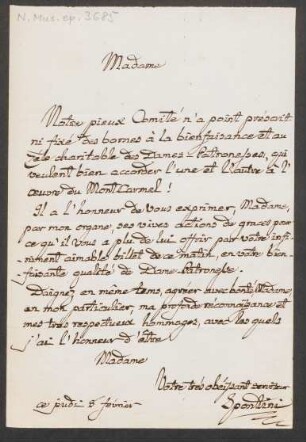 N. Mus. ep. 3685
Madame
Notre pieux Comité n'a point préscrit
ni fixé des bornes à la bienfaisance et au
zèle charitable des Dames-Patronesses, qui
veulent bien accorder l'une et l'autre à l'
œuvre du Mont Carmel!
Il a l'honneur de vous exprimer, Madame,
par mon organe, ses vives actions de graces pour
ce qu'il vous a plu de lui offrir par votre infi-
niment aimable billet de ce matin, en votre bien-
faisante qualité de Dame Patronesse.
Daignez, en même tems, agréer avec bonté, Madame,
en mon particulier, ma profonde reconnaissance et
mes très respectueux hommages, avec les quels
j'ai l'honneur d'être
Madame
Votre très obéissant serviteur
ce jeudi 5 février
Spontini